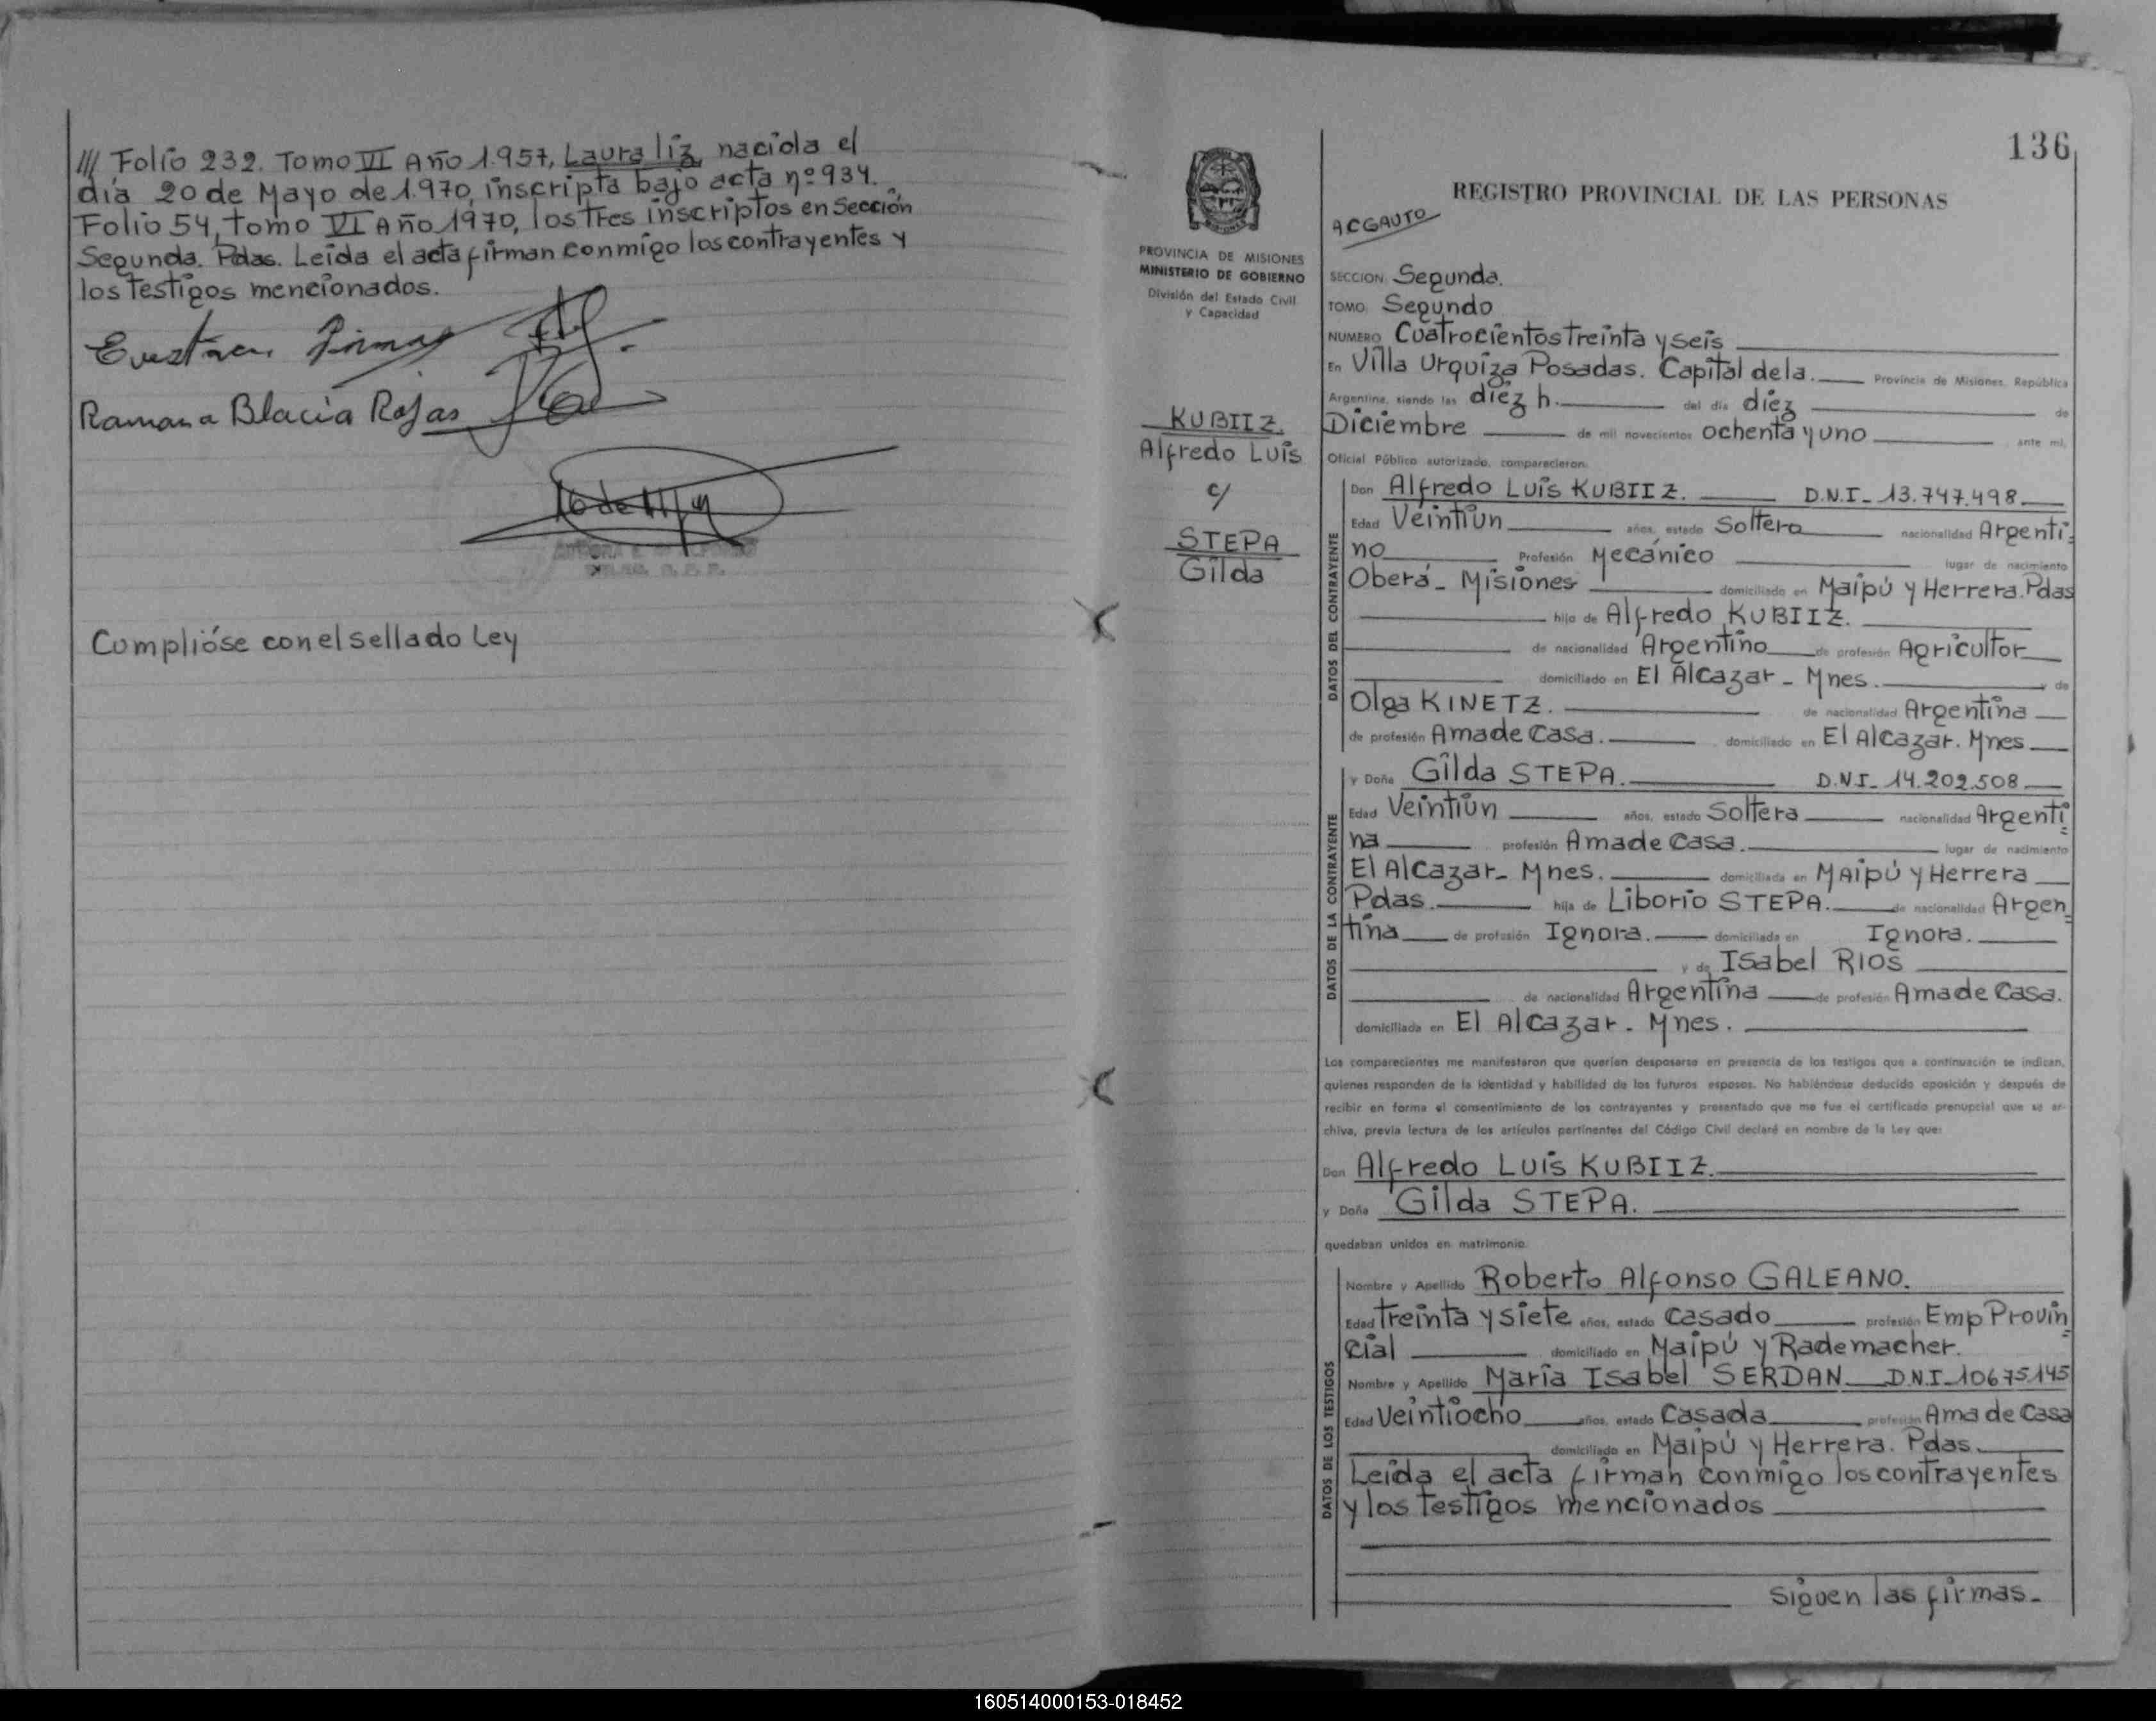 /// Folio 232. Tomo VI Año 1.957, Laura liz, nacida el
día 20 de Mayo de 1.970, inscripta bajo acta nº 934.
Folio 54, tomo VI Año 1970, los tres inscriptos en Sección
Segunda. Pdas. Leída el acta firman conmigo los contrayentes y
los testigos mencionados.
Ramona Blacia Rojas
Cumplióse con el sellado Ley
136
REGISTRO PROVINCIAL DE LAS PERSONAS
ACGAUTO
PROVINCIA DE MISIONES
MINISTERIO DE GOBIERNO
División del Estado Civil
y Capacidad
KUBIIZ.
Alfredo Luis
c/
STEPA
Gilda
SECCION Segunda.
TOMO Segundo
NUMERO Cuatrocientos treinta y seis
En Villa Urquiza Posadas. Capital de la. Provincia de Misiones, República
Argentina, siendo las diez h. del día diez de
Diciembre de mil novecientos ochenta y uno ante mi,
Oficial Público autorizado, comparecieron:
DATOS DEL CONTRAYENTE
Don Alfredo Luis KUBIIZ. D.N.I- 13.747.498
Edad Veintiun años, estado Soltero nacionalidad Argenti=
no Profesión Mecánico lugar de nacimiento
Oberá- Misiones domiciliado en Maipú y Herrera.Pdas
hijo de Alfredo KUBIIZ.
de nacionalidad Argentino de profesión Agricultor
domiciliado en El Alcazar - Mnes. y de
Olga KINETZ. de nacionalidad Argentina
de profesión Ama de Casa. domiciliado en El Alcazar. Mnes
DATOS DE LA CONTRAYENTE
y Doña Gilda STEPA. D.N.I- 14.202.508
Edad Veintiun años, estado Soltera nacionalidad Argenti=
na profesión Ama de Casa. lugar de nacimiento
El Alcazar- Mnes. domiciliada en Maipú y Herrera
Pdas. hija de Liborio STEPA. de nacionalidad Argen=
tina de profesión Ignora. domiciliada en Ignora.
y de Isabel RIOS
de nacionalidad Argentina de profesión Ama de Casa.
domiciliada en El Alcazar - Mnes.
Los comparecientes me manifestaron que querían desposarse en presencia de los testigos que a continuación se indican,
quienes responden de la identidad y habilidad de los futuros esposos. No habiéndose deducido oposición y después de
recibir en forma el consentimiento de los contrayentes y presentado que me fue el certificado prenupcial que se ar-
chiva, previa lectura de los artículos pertinentes del Código Civil declaré en nombre de la Ley que:
Don Alfredo Luis KUBIIZ.
y Doña Gilda STEPA.
quedaban unidos en matrimonio.
DATOS DE LOS TESTIGOS
Nombre y Apellido Roberto Alfonso GALEANO.
Edad treinta y siete años, estado Casado profesión Emp Provin=
cial domiciliado en Maipú y Rademacher.
Nombre y Apellido María Isabel SERDAN D.N.I-10675145
Edad Veintiocho años, estado Casada profesión Ama de Casa
domiciliado en Maipú y Herrera. Pdas.
Leída el acta firman conmigo los contrayentes
y los testigos mencionados
Siguen las firmas-
160514000153-018452